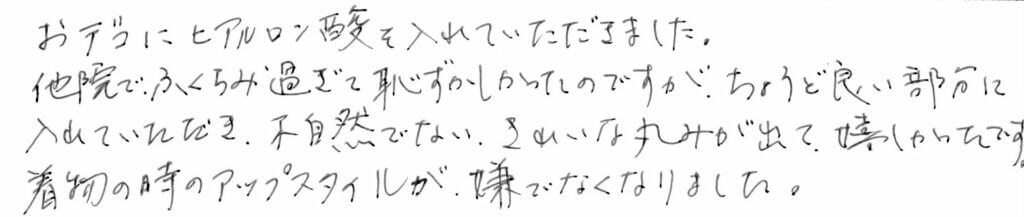 おデコにヒアルロン酸を入れていただきました。
他院で、ふくらみ過ぎて恥ずかしかったのですが、ちょうど良い部分に
入れていただき、不自然でない、きれいな丸みが出て、嬉しかったです
着物の時のアップスタイルが、嫌でなくなりました。